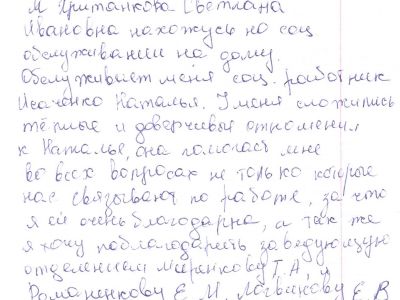 Я Христанкова Светлана
Ивановна нахожусь на соц
обслуживании на дому.
Обслуживает меня соц. работник
Исаченко Наталья. У меня сложились
тёплые и доверчивые отношения
к Наталье, она помогает мне
во всех вопросах не только которые
нас связывают по работе, за что
я ей очень благодарна, а так же
я хочу поблагодарить заведующую
отделением Миренкову Т.А, и
Романенкову Е И, Логвинову Е В